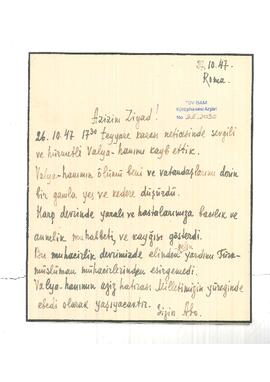 10.47.
Roma.
TÜV BAM
Kütüphanesi Arşivi
No
Azizim Ziyad!
26.10.47 17 30 teyyare kazası neticesinde sevgili
ve hürmetli Valya-hanımı kayb ettik.
Valya-hanımın ölümü beni ve vatandaşlarını derin
bir gamla, yes ve kedere düşürdü.
Harp devrinde yaralı ve hastalarımıza bacılık ve
annelik muhabbeti ve kayğısı gösterdi.
Bu muhacirlik devrimizde elinden gelen yardımı Türk-
müslüman mühacirlerinden esirgemedi.
Valya-hanımın aziz hatırası Milletimiğin yüreginde
ebedi olarak yaşıyacaktır.